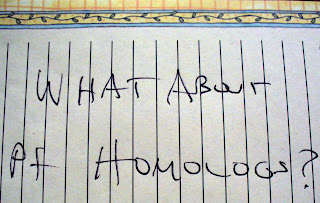 WHAT ABOUT
PF HOMOLOGS?